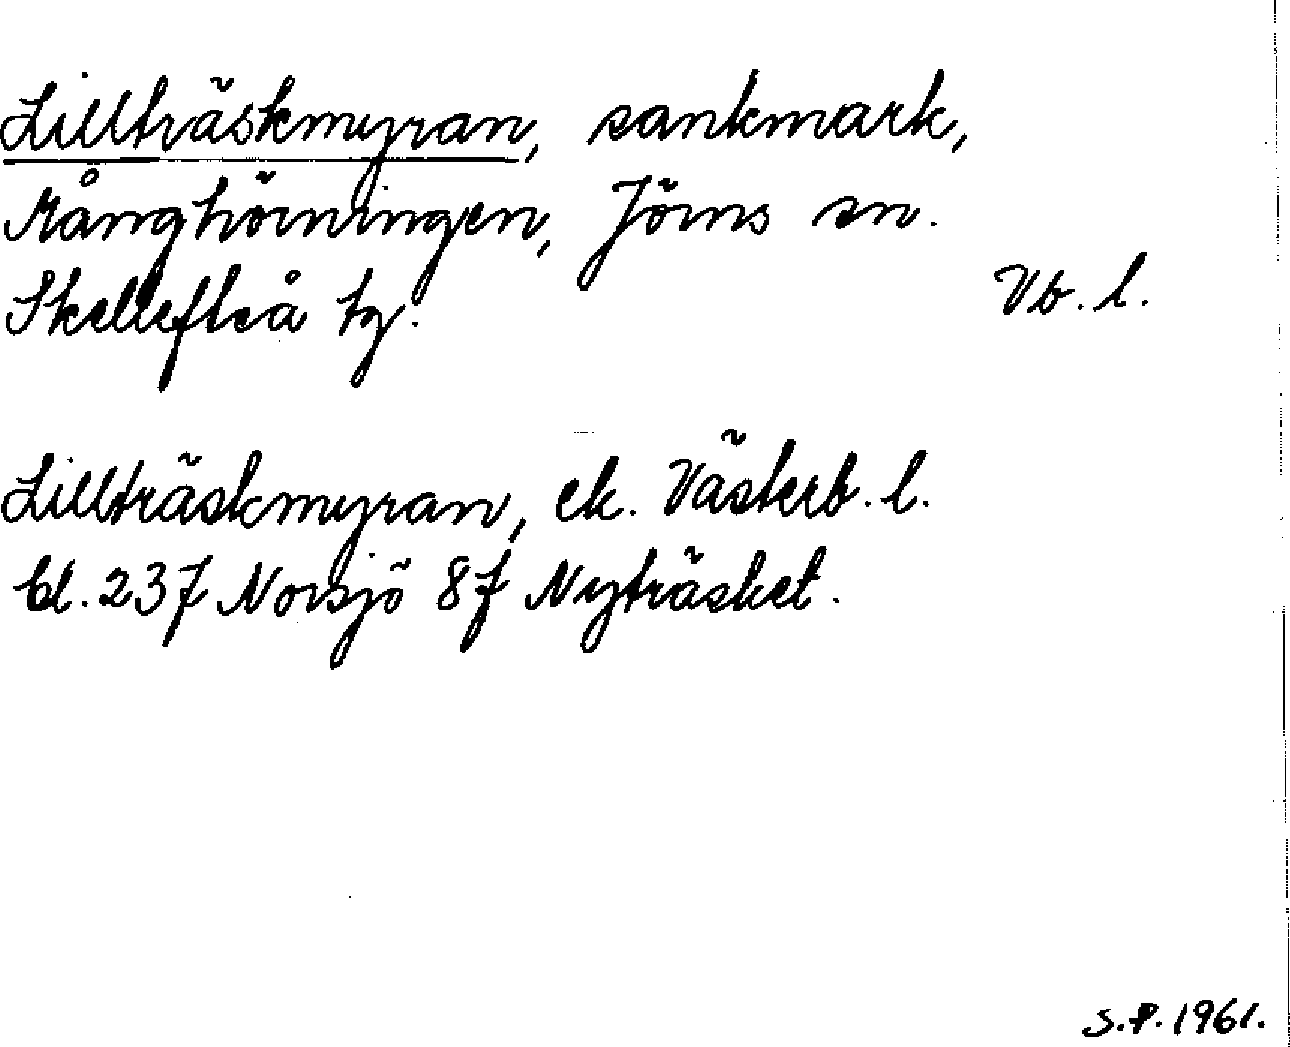 Lillträskmyran, sankmark,
Månghörningen, Jörns sn.
Skellefteå tg.
Vb. l.
Lillträskmyran, ek. Västerb. l.
bl. 237 Norsjö 8f Nyträsket.
S.P. 1961.